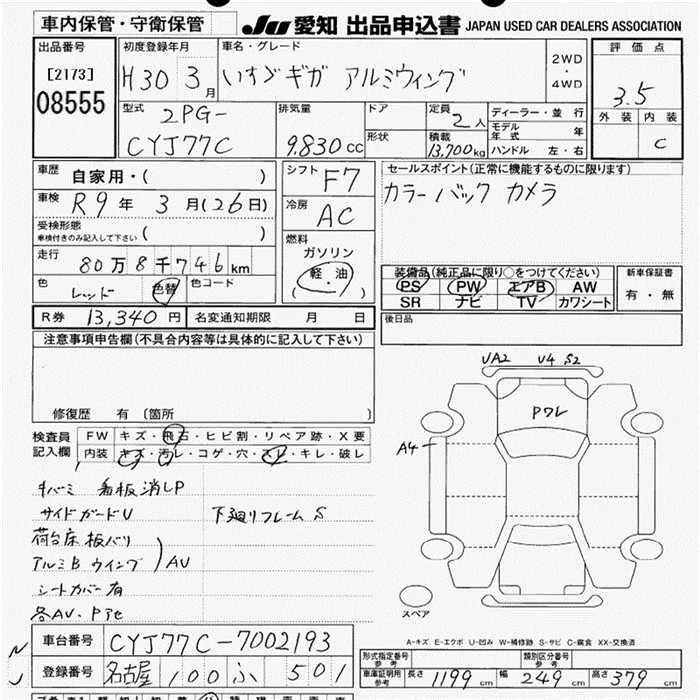 車内保管・守衛保管
JU 愛知 出品申込書 JAPAN USED CAR DEALERS ASSOCIATION
出品番号
[2173]
08555
初度登録年月
H30 3月
車名・グレード
いすゞギガ アルミウィング
2WD
・
4WD
評価点
3.5
外装 内装
C
型式
2PG-
CYJ77C
排気量
9,830 cc
ドア
形状
定員
2人
積載
13,700kg
ディーラー・並行
モデル年式 年
ハンドル 左・右
車歴
自家用・( )
車検
R9年 3月(26日)
受検形態
車検付きのみ記入して下さい ( )
走行
80万8千746km
色
レッド
色替
色コード
シフト
F7
冷房
AC
燃料
ガソリン
軽油
( )
セールスポイント(正常に機能するものに限ります)
カラーバックカメラ
装備品(純正品に限り○をつけてください)
PS PW エアB AW
SR ナビ TV カワシート
新車保証書
有・無
後日品
R券 13,340円
名変通知期限 月 日
注意事項申告欄(不具合内容等は具体的に記入して下さい)
修復歴 有 〔箇所 〕
検査員
記入欄
FW キズ・飛石・ヒビ割・リペア跡・X要
内装 キズ・汚レ・コゲ・穴・スレ・キレ・破レ
キバーミ 看板消しP
サイドガードU 下廻リフレームS
荷台床板バリ
アルミB ウイング AV
シートカバー有
各AV、P
UA2 U4 S2
Pワレ
A4
スペア
A-キズ E-エクボ U-凹み W-補修跡 S-サビ C-腐食 XX-交換済
車台番号 CYJ77C-7002193
登録番号 名古屋 100 ふ 501
型式指定番号
参考
類別区分番号
参考
車庫証明用
参考
長さ 1199cm 幅 249cm 高さ 379cm